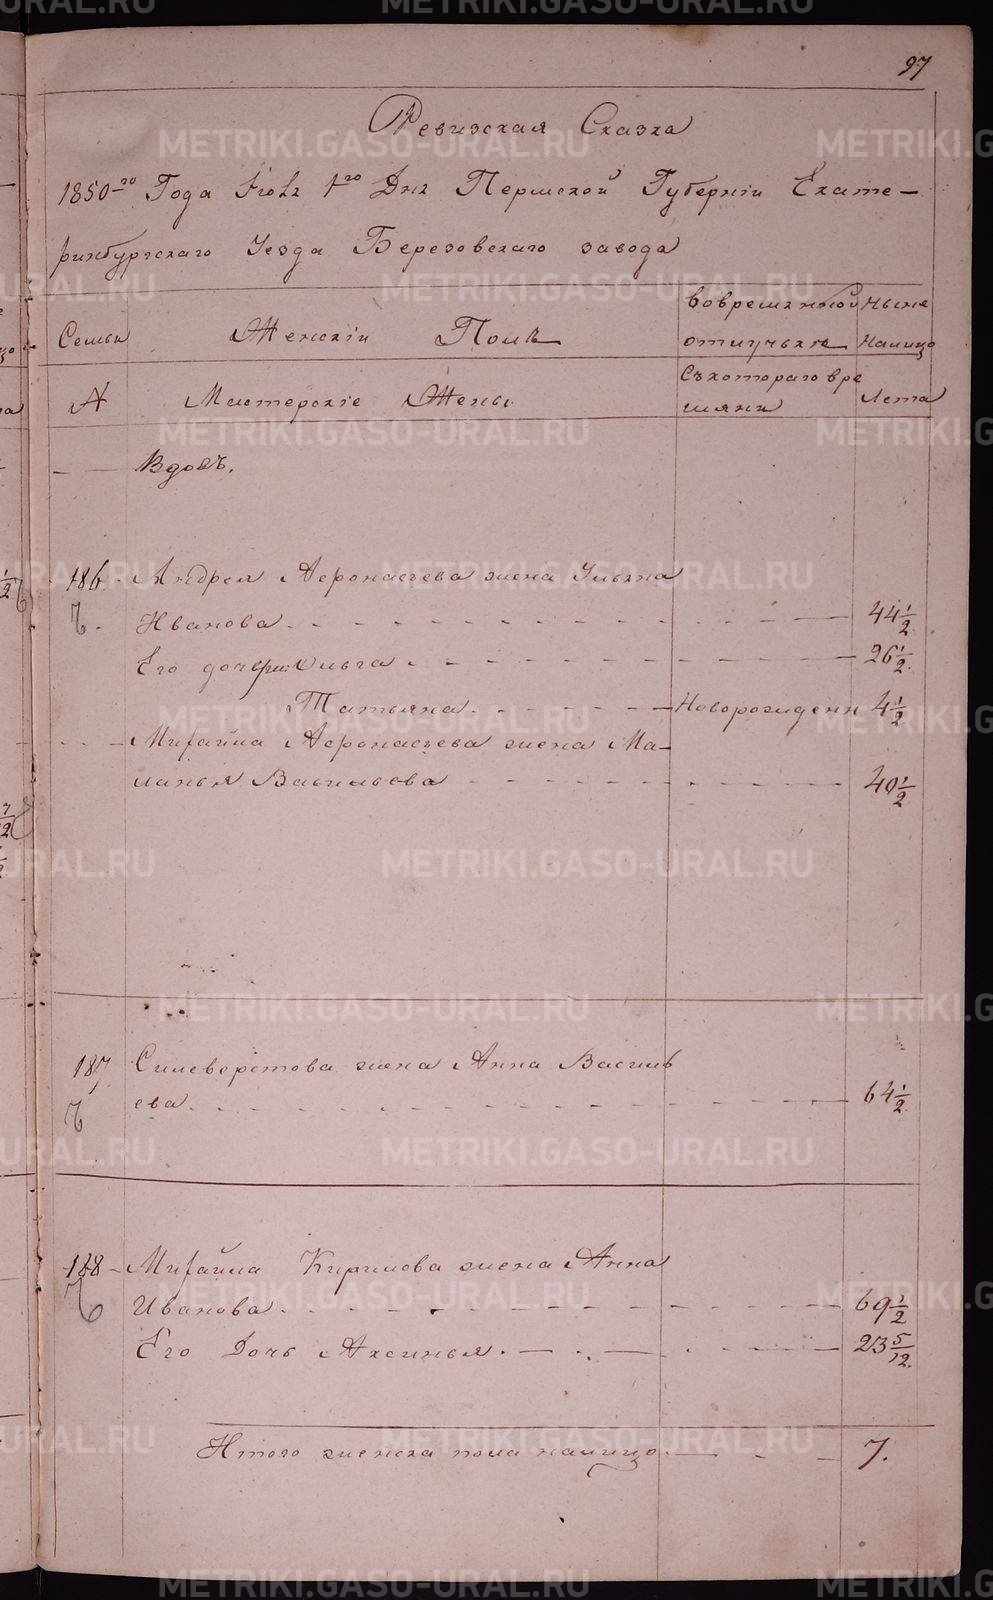 97
Ревизская Сказка
1850-го Года Іюля 1го Дня Пермской Губерніи Екате-
ринбургскаго Уезда Березовскаго завода
Семьи
Женскій Полъ
Вовременной
отлучке
Ныне
Налицо
№
Мастерскіе Жены
Съкотораго вре
мяни
Лета
Вдовъ.
186. Андрея Афонасьева жена Ульяна
Иванова 44 1/2
Его дочери: Ольга 26 1/2
Татьяна Новорожденн 4 1/2
Михайла Афонасьева жена Ма-
ланья Васильева 40 1/2
187 Силеверстова жена Анна Василь
ева 64 1/2
188 Михайла Кирилова жена Анна
Иванова 69 1/2
Его Дочь Аксинья 23 5/12
Итого женска пола налицо 7.
METRIKI.GASO-URAL.RU